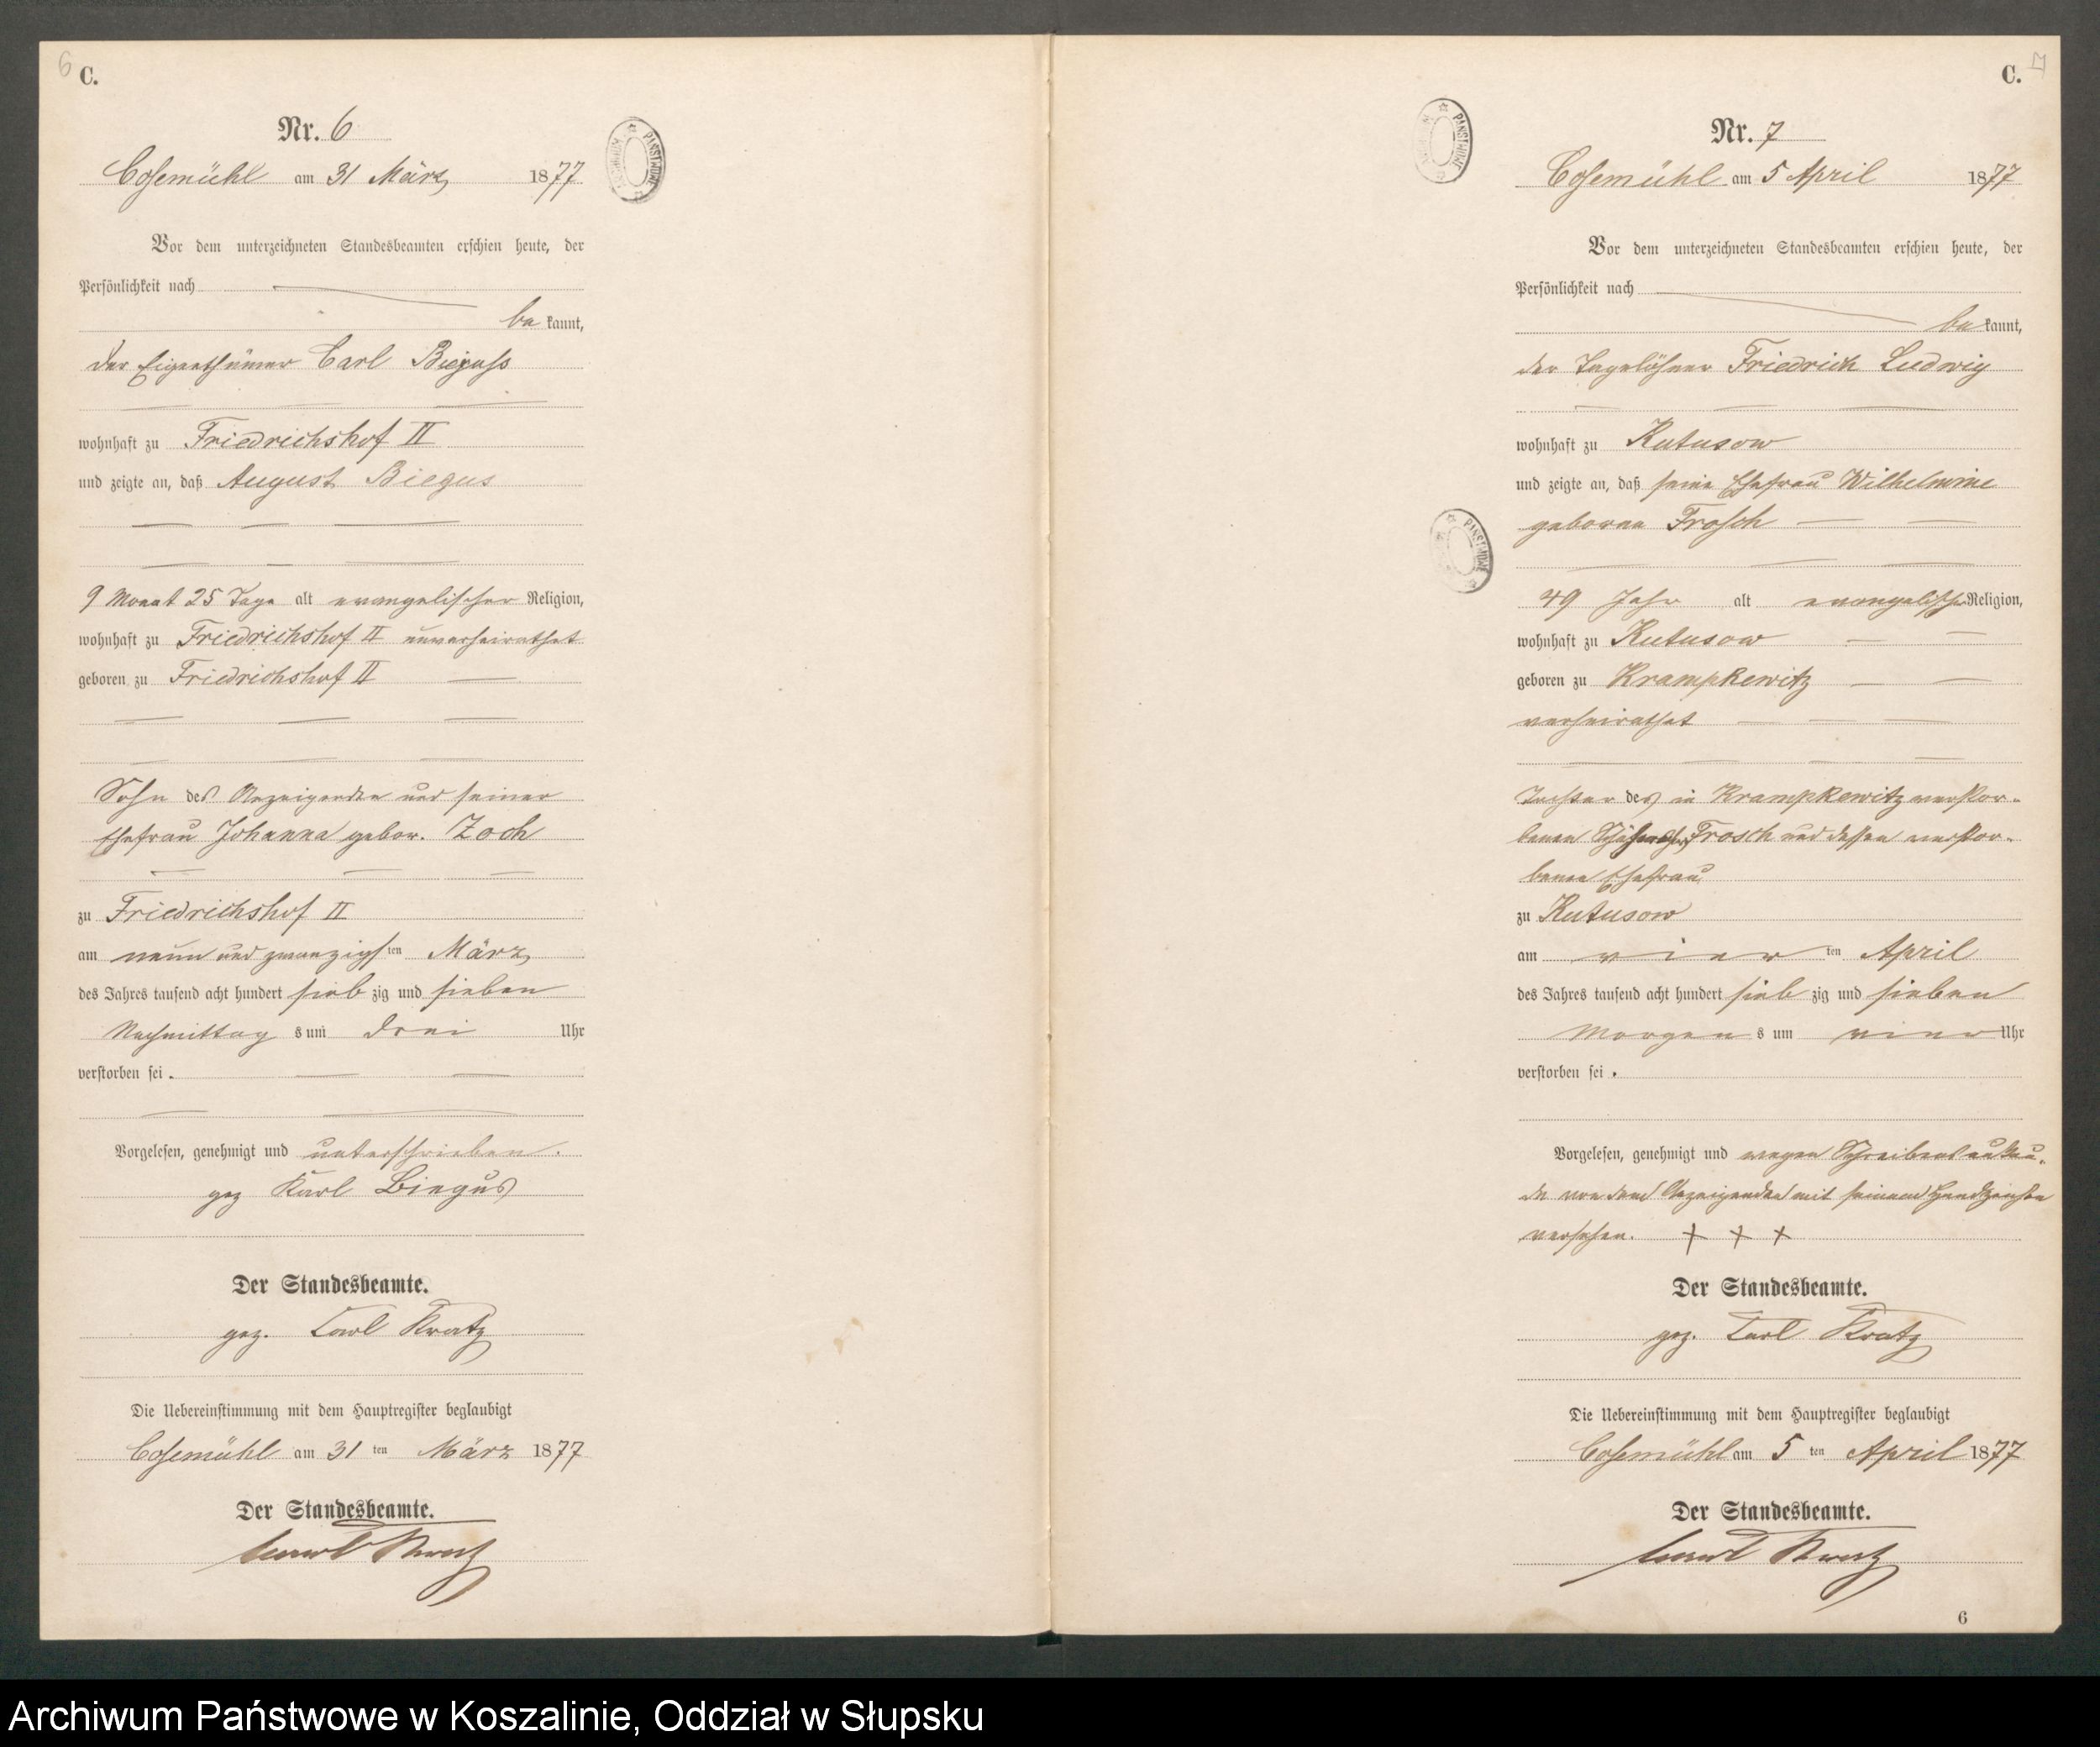 6
C.
Nr. 6
Cosemühl am 31 März 1877
Vor dem unterzeichneten Standesbeamten erschien heute, der
Persönlichkeit nach
be kannt,
der Eigenthümer Carl
wohnhaft zu Friedrichshof II
und zeigte an, daß August Biegus
9 Monat 25 Tage alt evangelischer Religion,
wohnhaft zu Friedrichshof II unverheirathet
geboren zu Friedrichshof II
Sohn des Anzeigenden und seiner
Ehefrau Johanna gebor. Zoch
zu Friedrichshof II
am neun und zwanzigsten März
des Jahres tausend acht hundert sieb zig und sieben
Nachmittag s um drei Uhr
verstorben sei.
Vorgelesen, genehmigt und unterschrieben.
gez Karl Biegus
Der Standesbeamte.
gez. Carl Kratz
Die Uebereinstimmung mit dem Hauptregister beglaubigt
Cosemühl am 31 ten März 1877
Der Standesbeamte.
Carl Kratz
PANSTWOWE
7
C.
Nr. 7
Cosemühl am 5 April 1877
Vor dem unterzeichneten Standesbeamten erschien heute, der
Persönlichkeit nach
be kannt,
der Tagelöhner Friedrich Ludwig
wohnhaft zu Kutusow
und zeigte an, daß seine Ehefrau Wilhelmine
geborne Frosch
49 Jahr alt evangelischer Religion,
wohnhaft zu Kutusow
geboren zu Krampkewitz
verheirathet
Tochter des in Krampkewitz verstor-
benen Frosch und dessen verstor-
benen Ehefrau
zu Kutusow
am vier ten April
des Jahres tausend acht hundert sieb zig und sieben
Morgen s um vier Uhr
verstorben sei.
Vorgelesen, genehmigt und wegen Schreibensunkun-
de von dem Anzeigenden mit seinem Handzeichen
versehen. + + +
Der Standesbeamte.
gez. Carl Kratz
Die Uebereinstimmung mit dem Hauptregister beglaubigt
Cosemühl am 5 ten April 1877
Der Standesbeamte.
Carl Kratz
6
PANSTWOWE
PANSTWOWE
Archiwum Państwowe w Koszalinie, Oddział w Słupsku